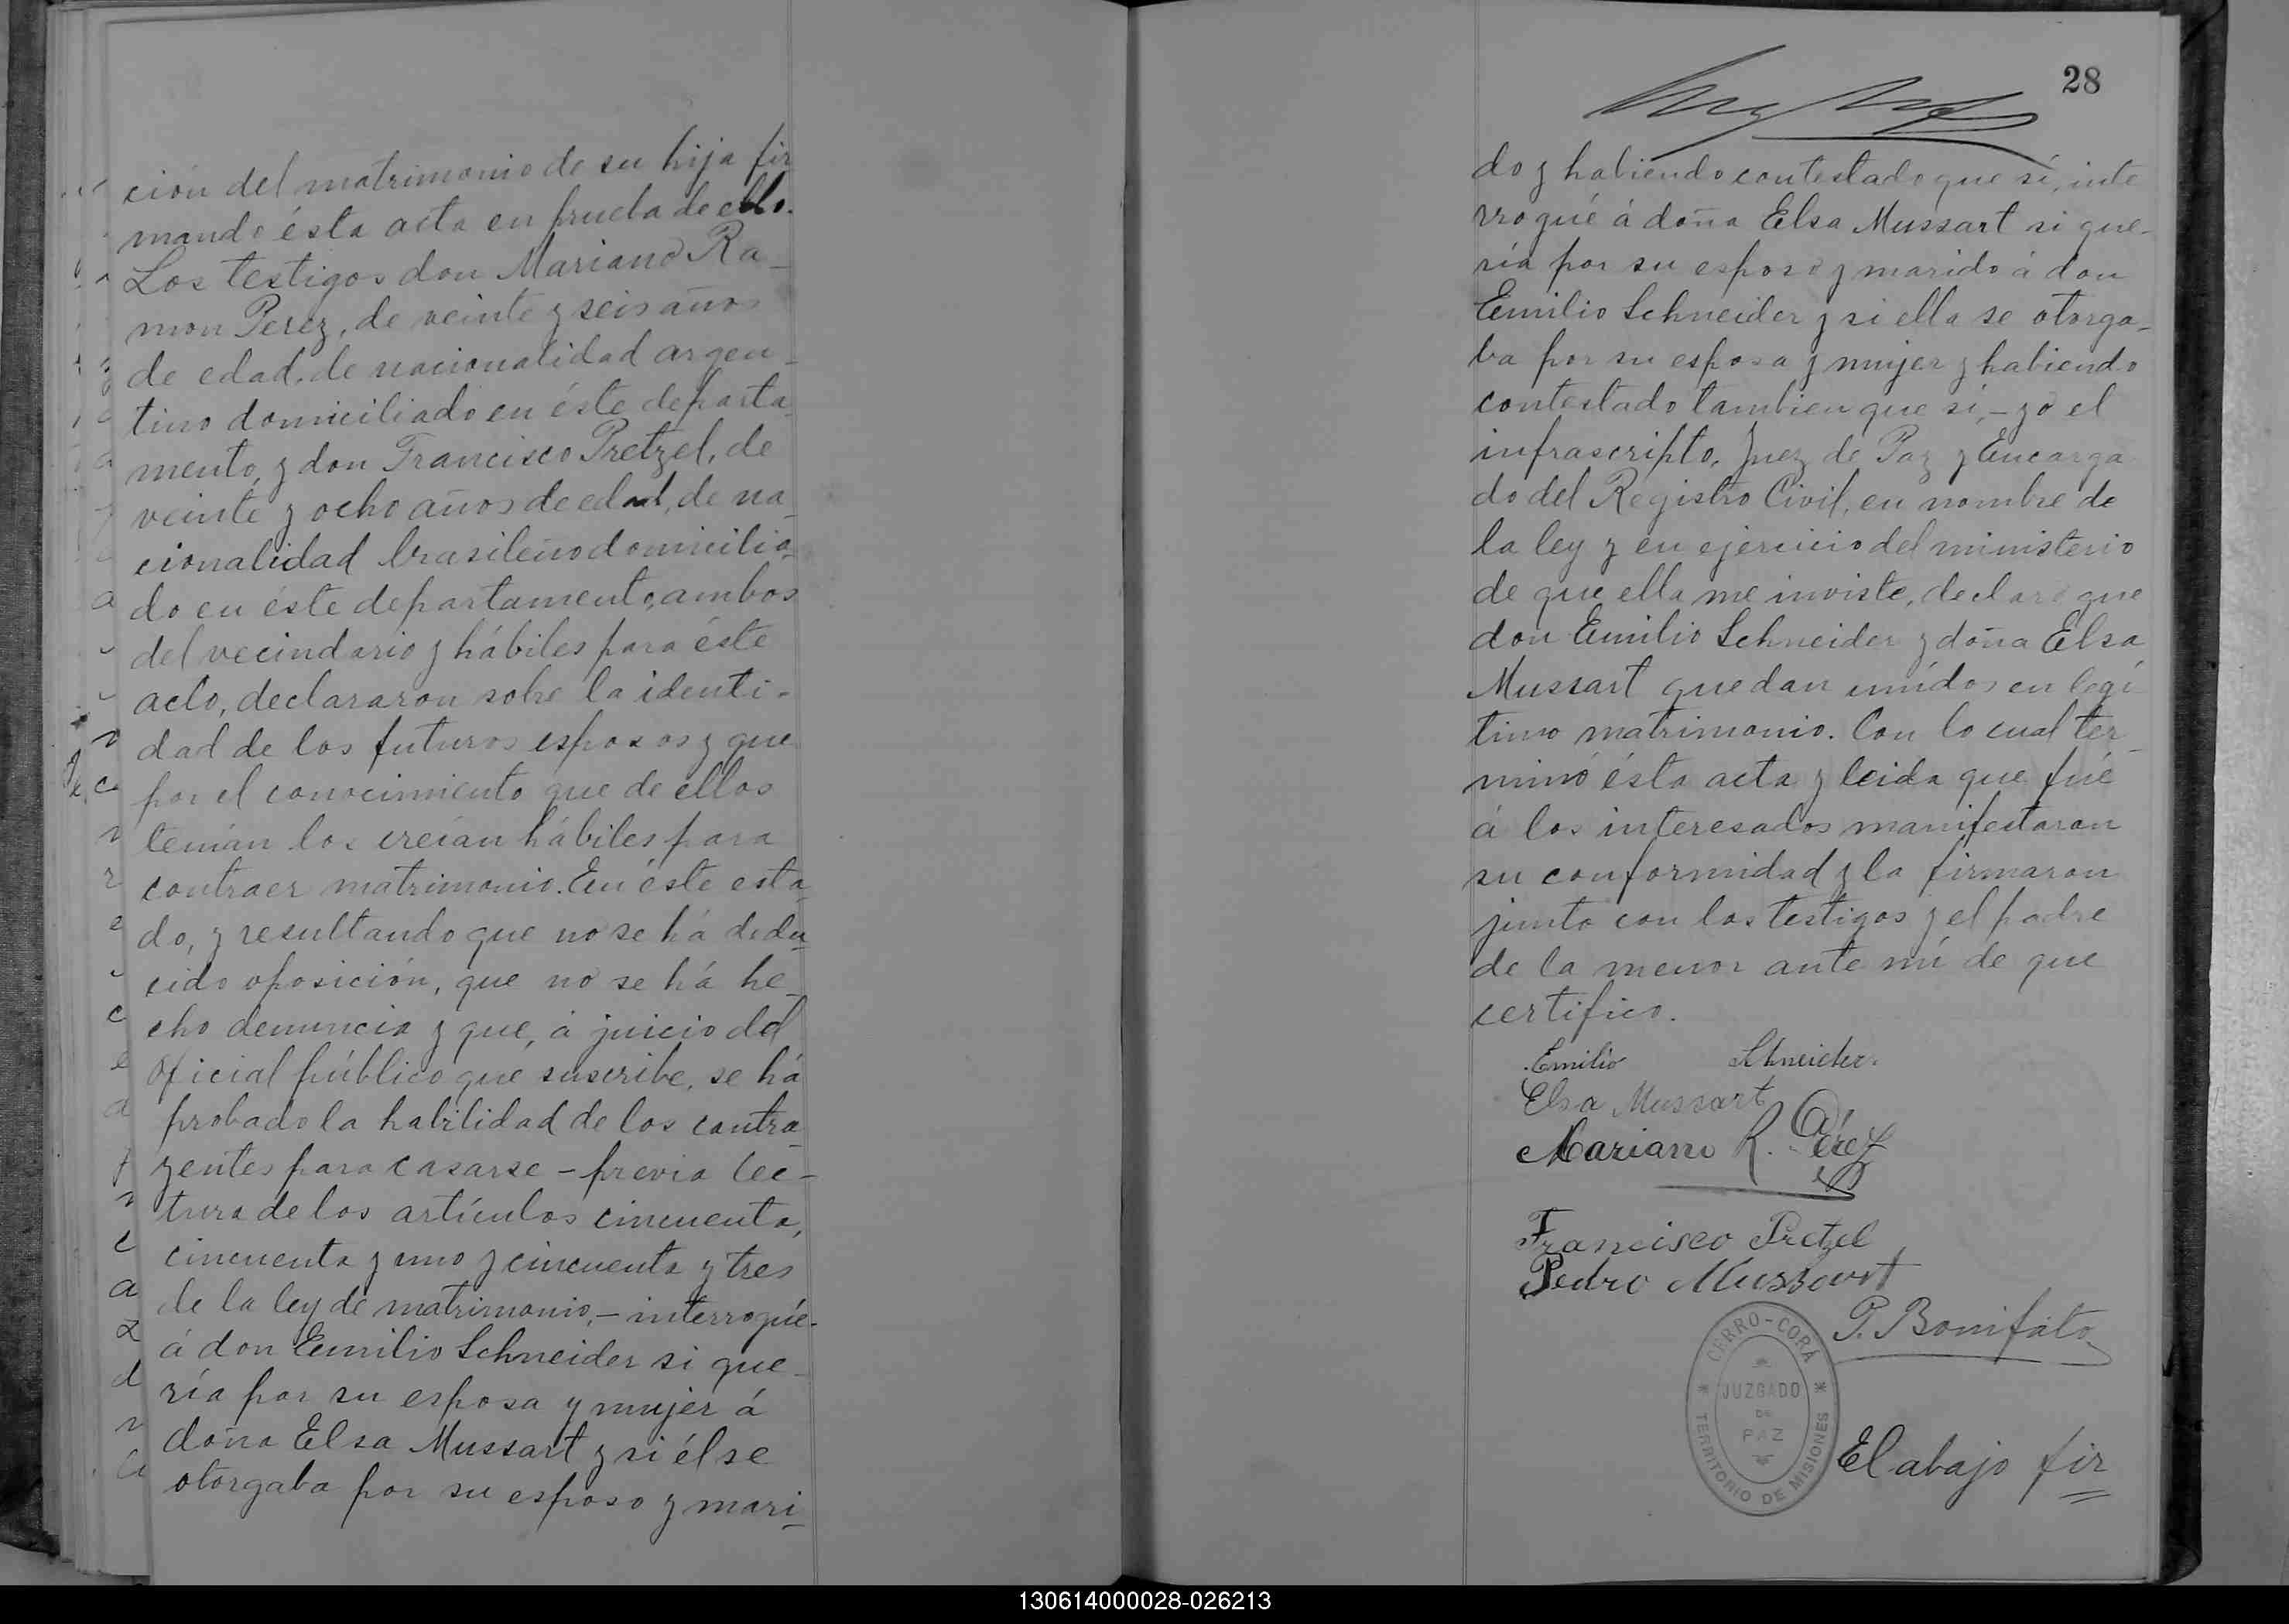 ción del matrimonio de su hija fir
mando ésta acta en prueba de ello.
Los testigos don Mariano Ra-
mon Perez, de veinte y seis años
de edad, de nacionalidad argen-
tino domiciliado en éste departa-
mento, y don Francisco Pretzel, de
veinte y ocho años de edad, de na-
cionalidad brasileño domicilia-
do en éste departamento, ambos
del vecindario y hábiles para éste
acto, declararon sobre la identi-
dad de los futuros esposos y que
por el conocimiento que de ellos
tenían los creían hábiles para
contraer matrimonio. En éste esta-
do, y resultando que no se há dedu-
cido oposición, que no se há he-
cho denuncia y que, á juicio del
Oficial público que suscribe, se há
probado la habilidad de los contra-
yentes para casarse - previa lec-
tura de los artículos cincuenta,
cincuenta y uno y cincuenta y tres
de la ley de matrimonio, - interrogué
á don Emilio Schneider si que-
ría por su esposa y mujer á
doña Elsa Mussart y si él se
otorgaba por su esposo y mari-
28
do y habiendo contestado que sí, inte
rrogué á doña Elsa Mussart si que-
ría por su esposo y marido á don
Emilio Schneider y si ella se otorga-
ba por su esposa y mujer y habiendo
contestado tambien que sí, - yo el
infrascripto, Juez de Paz y Encarga
do del Registro Civil, en nombre de
la ley y en ejercicio del ministerio
de que ella me inviste, declaro que
don Emilio Schneider y doña Elsa
Mussart quedan unídos en legí
timo matrimonio. Con lo cual ter-
minó ésta acta y leida que fué
á los interesados manifestaron
su conformidad y la firmaron
junto con los testigos y el padre
de la menor ante mí de que
certifico.
Emilio Schneider.
Elsa Mussart
Mariano R. Pérez
Francisco Pretzel
Pedro Mussart
P. Bonifato
CERRO-CORÁ
JUZGADO
DE
PAZ
TERRITORIO DE MISIONES
El abajo fir
130614000028-026213